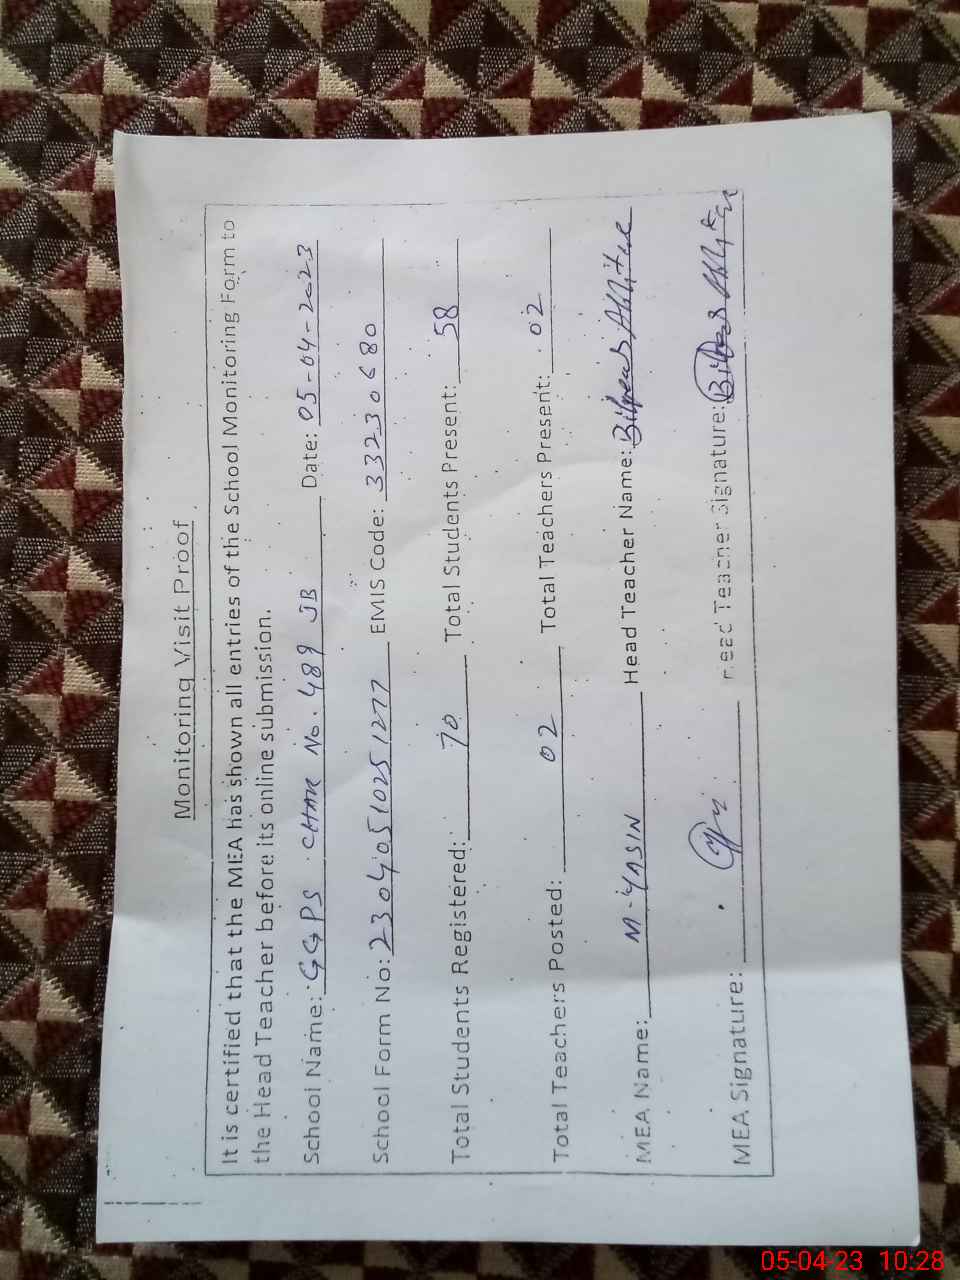 Monitoring Visit Proof
It is certified that the MEA has shown all entries of the School Monitoring Form to
the Head Teacher before its online submission.
School Name: GGPS CHAK No. 489 JB Date: 05-04-2023
School Form No: 23040510251277 EMIS Code: 33230680
Total Students Registered: 70 Total Students Present: 58
Total Teachers Posted: 02 Total Teachers Present: 02
MEA Name: M. YASIN Head Teacher Name:
MEA Signature: Head Teacher Signature:
05-04-23 10:28